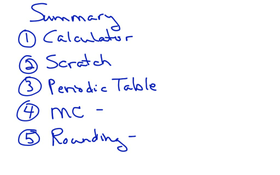 Summary
① Calculator
② Scratch
③ Periodic Table
④ MC -
⑤ Rounding -